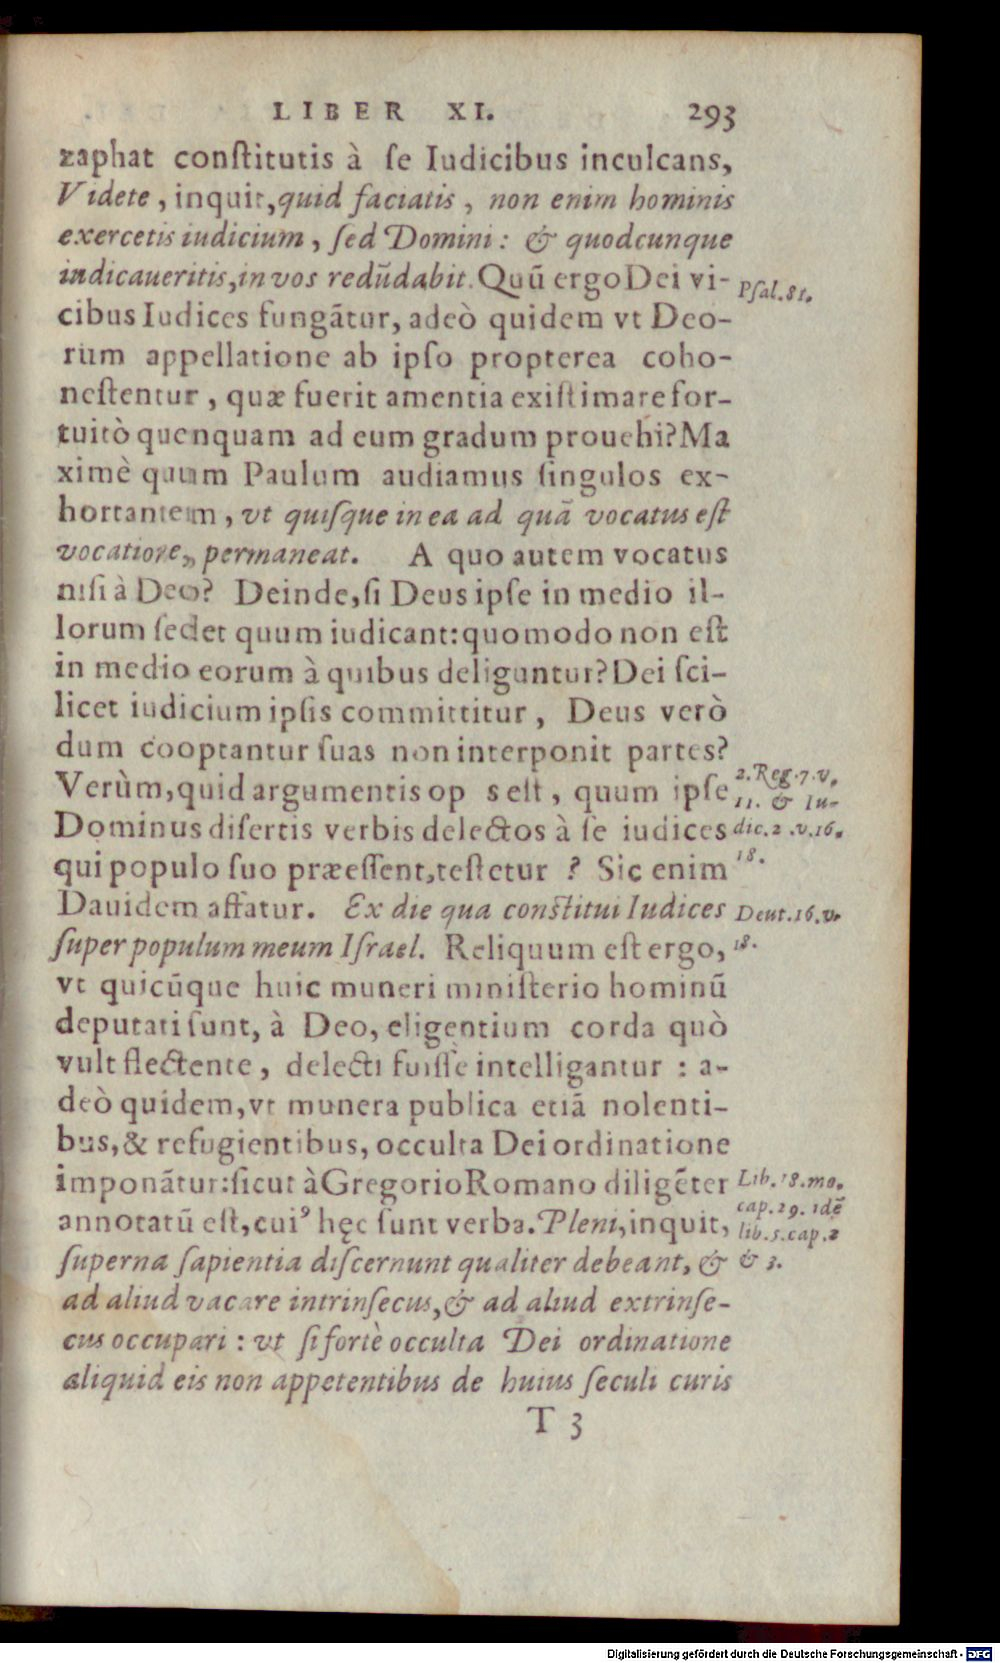 LIBER XI. 293
zaphat conſtitutis à ſe Iudicibus inculcans,
Videte, inquit, quid faciatis, non enim hominis
exercetis iudicium, ſed Domini: & quodcunque
iudicaueritis, in vos redūdabit. Quū ergo Dei vi-
Pſal. 81.
cibus Iudices fungātur, adeò quidem vt Deo-
rum appellatione ab ipſo propterea coho-
neſtentur, quæ fuerit amentia exiſtimare for-
tuitò quenquam ad eum gradum prouehi? Ma
ximè quum Paulum audiamus ſingulos ex-
hortantem, vt quiſque in ea ad quā vocatus eſt
vocatione, permaneat. A quo autem vocatus
niſi à Deo? Deinde, ſi Deus ipſe in medio il-
lorum ſedet quum iudicant: quomodo non eſt
in medio eorum à quibus deliguntur? Dei ſci-
licet iudicium ipſis committitur, Deus verò
dum cooptantur ſuas non interponit partes?
Verùm, quid argumentis op s eſt, quum ipſe
Dominus diſertis verbis delectos à ſe iudices
qui populo ſuo præeſſent, teſtetur? Sic enim
2. Reg. 7. v.
11. & Iu-
dic. 2. v. 16.
18.
Dauidem affatur. Ex die qua conſtitui Iudices
ſuper populum meum Iſrael. Reliquum eſt ergo,
Deut. 16. v.
18.
vt quicūque huic muneri miniſterio hominū
deputati ſunt, à Deo, eligentium corda quò
vult flectente, delecti fuiſſe intelligantur: a-
deò quidem, vt munera publica etiā nolenti-
bus, & refugientibus, occulta Dei ordinatione
imponātur: ſicut à Gregorio Romano diligēter
annotatū eſt, cuiꝰ hęc ſunt verba. Pleni, inquit,
Lib. 18. mo.
cap. 29. idē
lib. 5. cap. 2
& 3.
ſuperna ſapientia diſcernunt qualiter debeant, &
ad aliud vacare intrinſecus, & ad aliud extrinſe-
cus occupari: vt ſi fortè occulta Dei ordinatione
aliquid eis non appetentibus de huius ſeculi curis
T 3
Digitalisierung gefördert durch die Deutsche Forschungsgemeinschaft - DFG